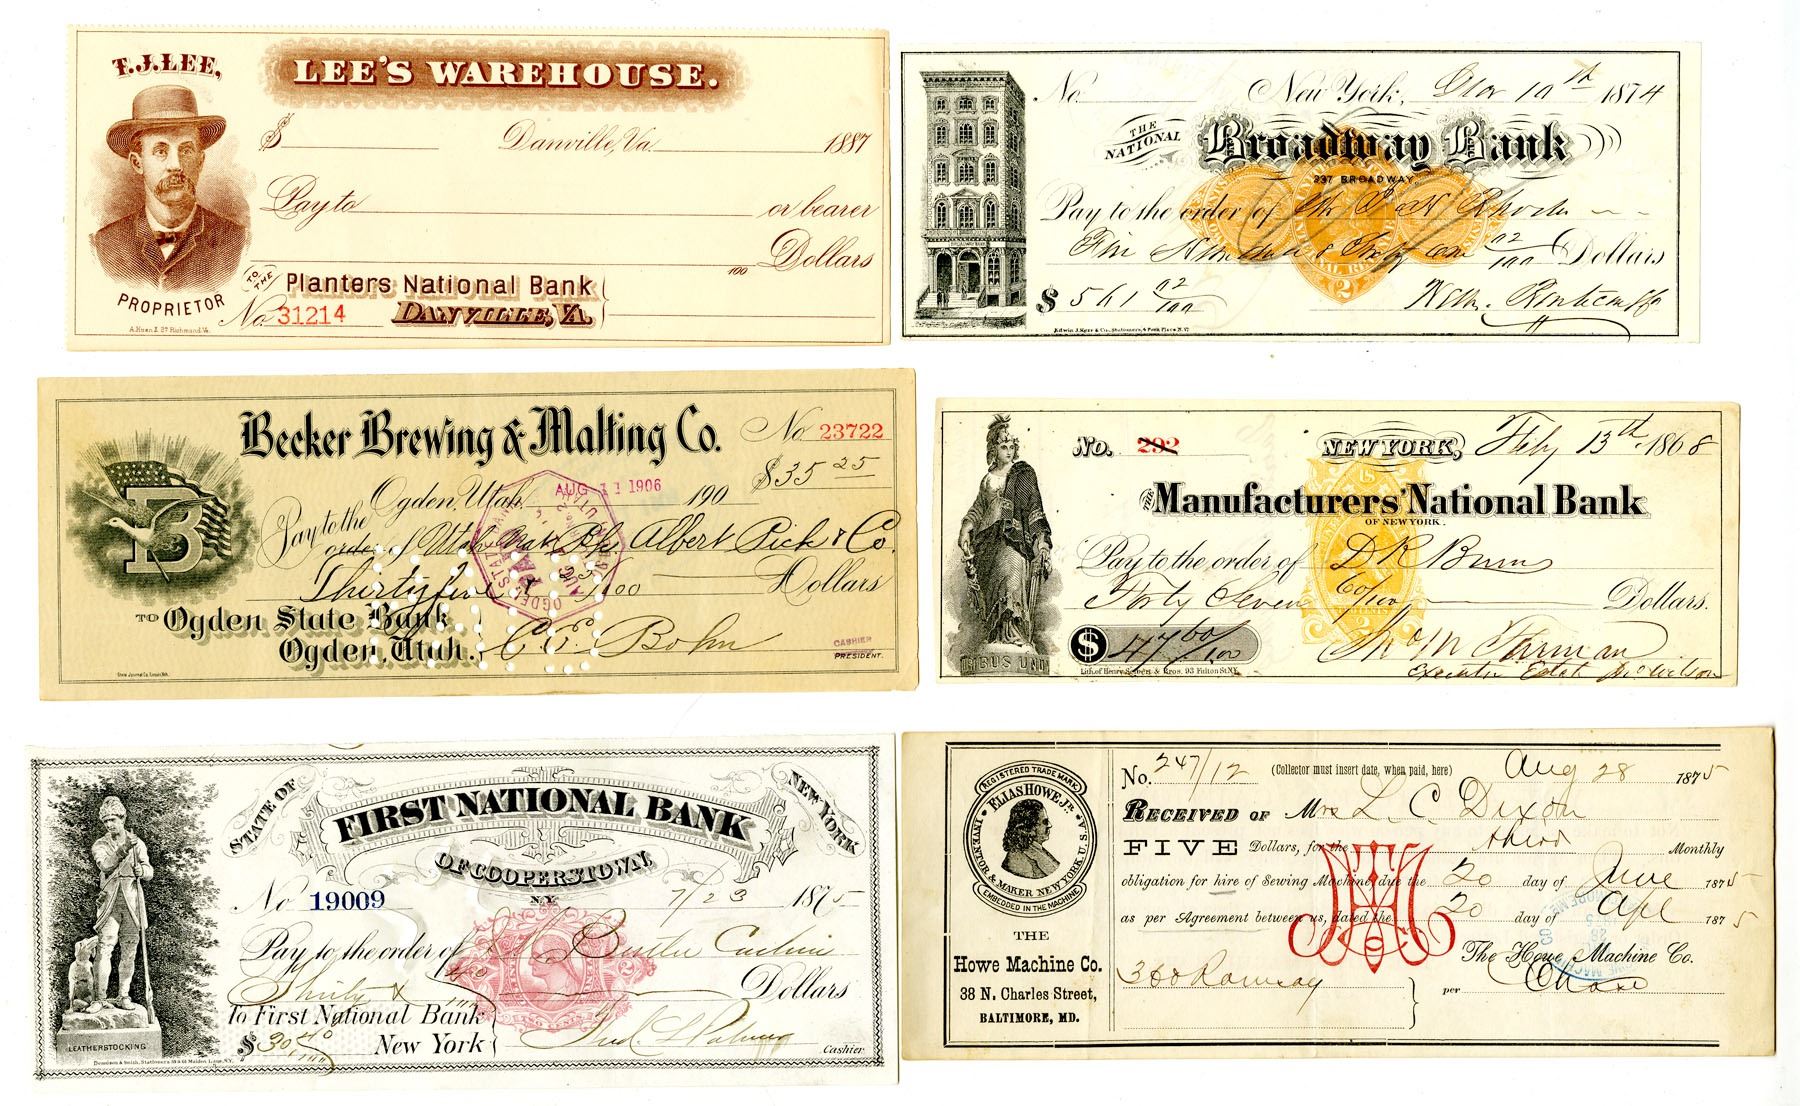 T.J.LEE,
LEE'S WAREHOUSE.
$ Danville, Va. 1887
Pay to or bearer
100 Dollars
PROPRIETOR
TO THE Planters National Bank
No. 31214 DANVILLE, VA.
A.Hoen & Co Richmond, Va.
No. New York, 10th 1874
THE NATIONAL Broadway Bank
237 BROADWAY
Pay to the order of
Five Hundred & Sixty one 02/100 Dollars
$ 561 02/100
BROADWAY BANK
Edwin J. Kerr & Co., Stationers, 4 Park Place N.Y.
Becker Brewing & Malting Co. No 23722
$35 25
B
Ogden, Utah. AUG 11 1906 190
Pay to the order of Utah Albert Pick & Co.
Thirty five & 25/100 Dollars
TO Ogden State Bank
Ogden, Utah. C. E. Bohn
CASHIER
PRESIDENT.
No. 292 NEW YORK, Feby 13th 1868
THE Manufacturers' National Bank
OF NEW YORK.
Pay to the order of D R
Forty Seven 60/100 Dollars.
$ 47 60/100
Lith. of Henry Seibert & Bros. 93 Fulton St. N.Y.
STATE OF NEW YORK
FIRST NATIONAL BANK
OF COOPERSTOWN,
N.Y.
No 19009 7/23 1875
Pay to the order of Cashier
Thirty & Dollars
To First National Bank
$ 30 New York
Cashier
LEATHERSTOCKING
REGISTERED TRADE MARK
ELIAS HOWE JR.
INVENTOR & MAKER NEW YORK U.S.A.
EMBEDDED IN THE MACHINE
THE
Howe Machine Co.
38 N. Charles Street,
BALTIMORE, MD.
No. 247/12 (Collector must insert date, when paid, here) Aug 28 1875
RECEIVED OF Mrs L. C. Dixon
FIVE Dollars, for the third Monthly
obligation for hire of Sewing Machine due the 20 day of June 1875
as per Agreement between us, dated the 20 day of Apl 1875
The Howe Machine Co.
368 Ramsay per Chase